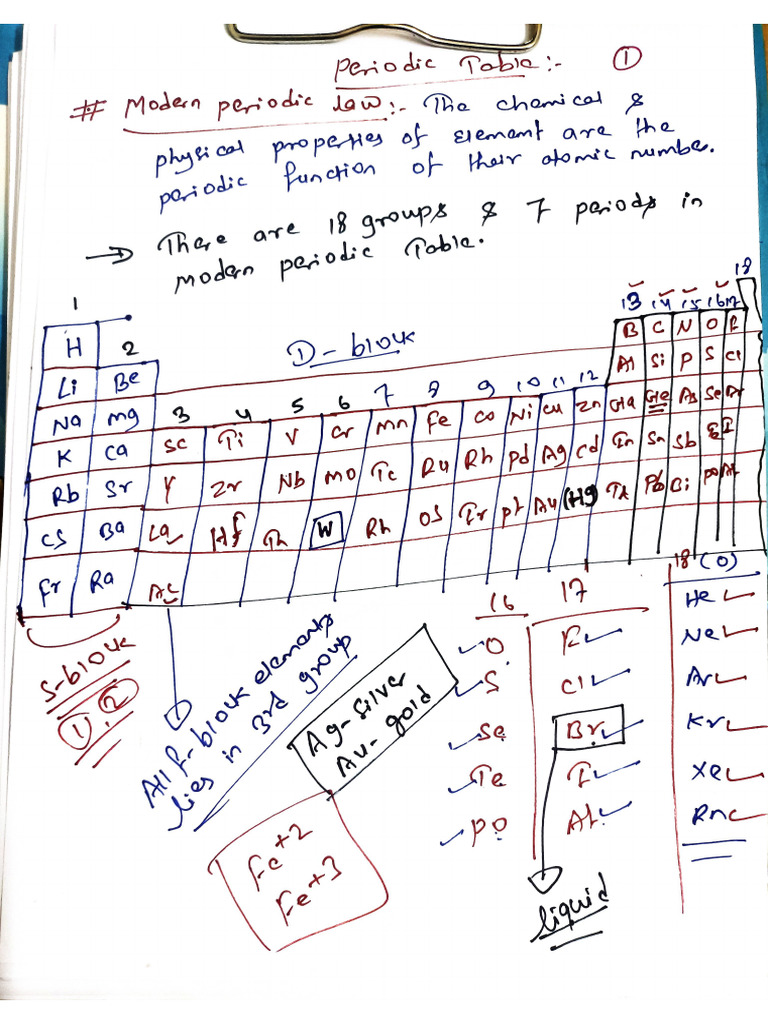 Periodic Table:- ①
# Modern periodic law:- The chemical &
physical properties of element are the
periodic function of their atomic number.
→ There are 18 groups & 7 periods in
modern periodic Table.
1 18
13 14 15 16 17
H 2 D-block B C N O F
Li Be Al Si P S Cl
3 4 5 6 7 8 9 10 11 12
Na mg Ga Ge As Se Br
K Ca Sc Ti V Cr Mn Fe Co Ni Cu Zn In Sn Sb I
Rb Sr Y Zr Nb Mo Tc Ru Rh Pd Ag Cd Tl Pb Bi Po At
Cs Ba La Hf Th W Rh Os Ir Pt Au (Hg)
Fr Ra Ac
S-block
① ②
All f-block elements
lies in 3rd group
Ag-silver
Au-gold
Fe+2
Fe+3
16 17 18 (0)
O F He
S Cl Ne
Se Br Ar
Te I Kr
Po At Xe
Rn
liquid